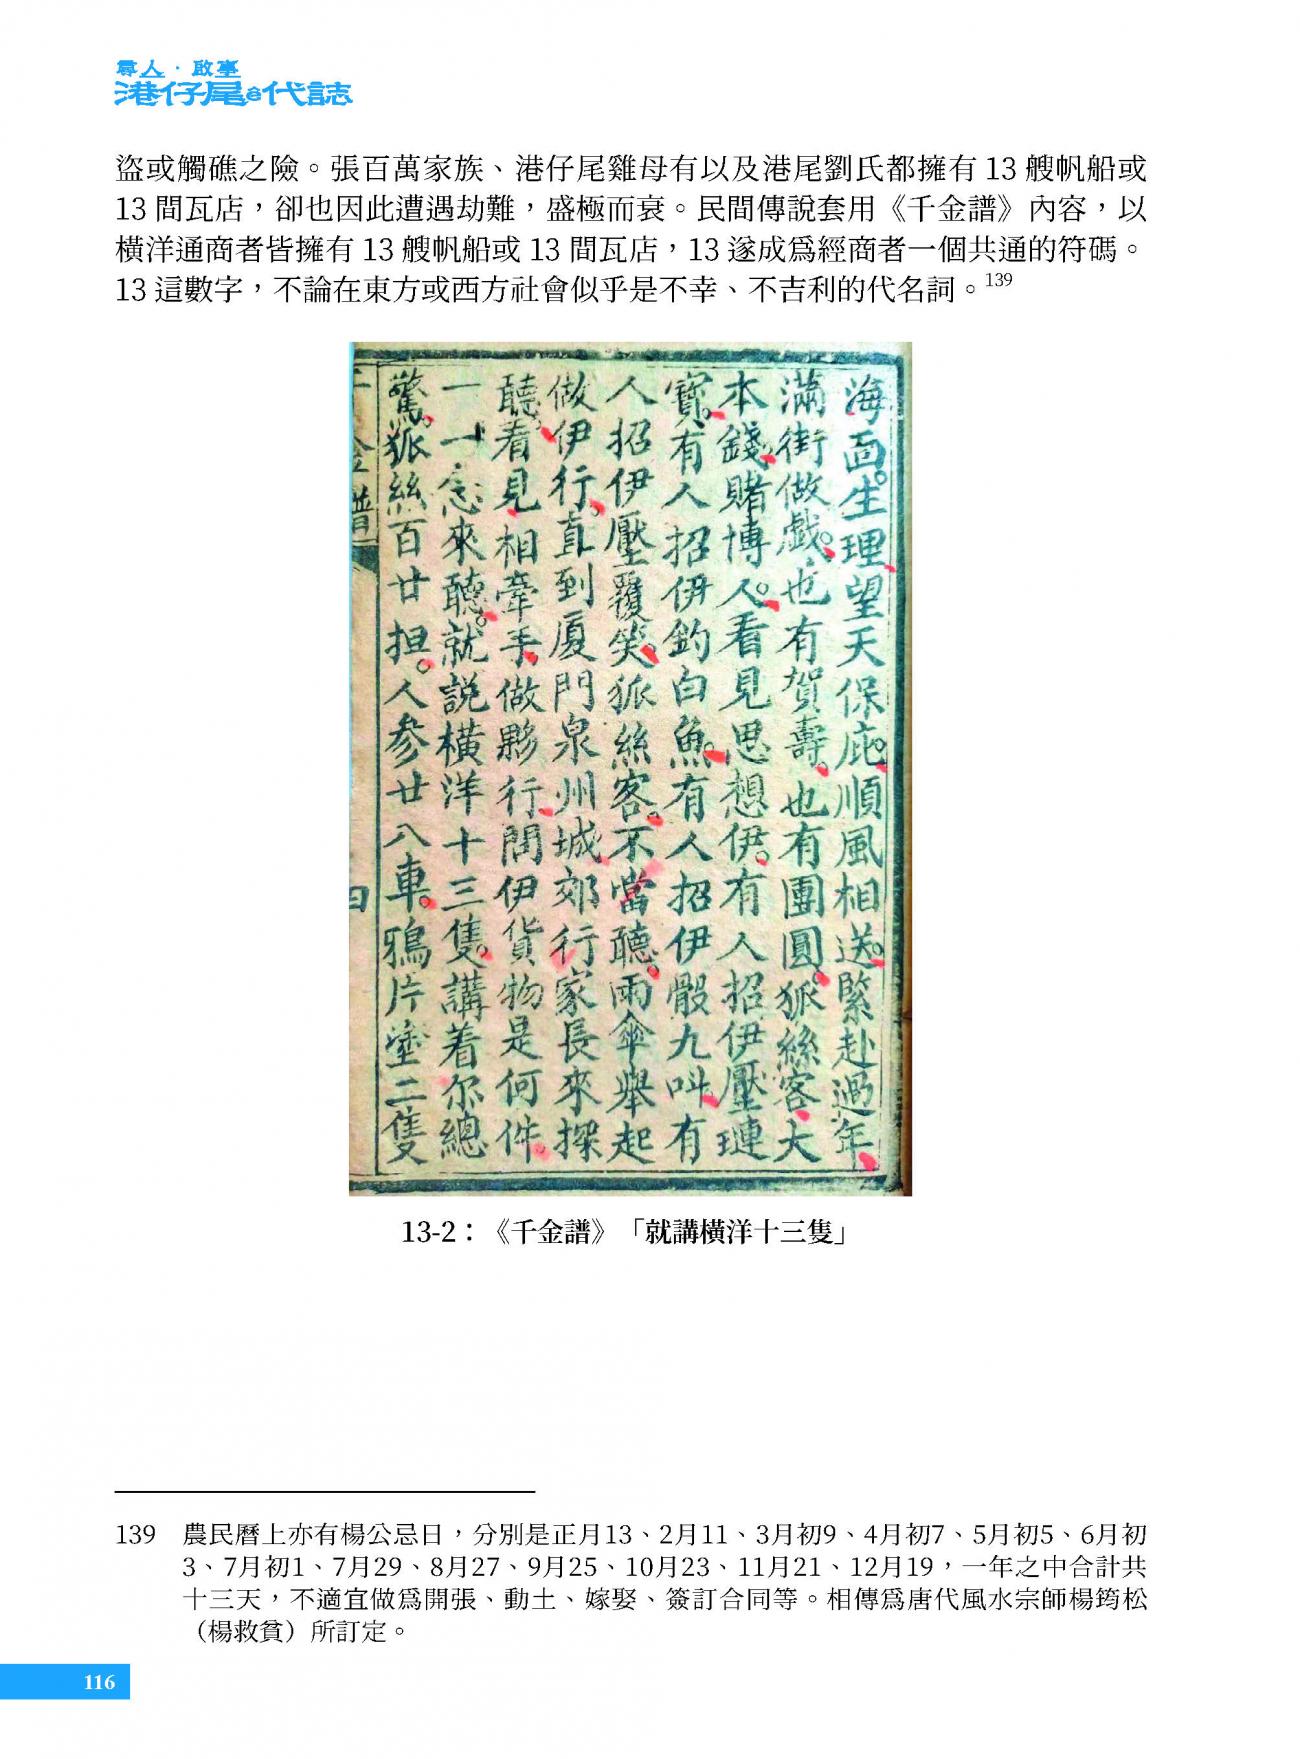 尋人・啟事
港仔尾ê代誌
盜或觸礁之險。張百萬家族、港仔尾雞母有以及港尾劉氏都擁有 13 艘帆船或
13 間瓦店，卻也因此遭遇劫難，盛極而衰。民間傳說套用《千金譜》內容，以
橫洋通商者皆擁有 13 艘帆船或 13 間瓦店，13 遂成為經商者一個共通的符碼。
13 這數字，不論在東方或西方社會似乎是不幸、不吉利的代名詞。139
海面。生理望天保庇。順風相送。緊赴過年
滿街做戲。也有賀壽。也有團圓。狐絲客大
本錢賭博人。看見思想伊。有人招伊壓璉
寶。有人招伊釣白魚。有人招伊骰九叫有
人招伊壓覆笑。狐絲客。不當聽。雨傘舉起
做伊行。直到厦門泉州城。郊行家長來探
聽。看見相牽手。做夥行。問伊貨物是何件。
一一念來聽。就説橫洋十三隻。講着尔總
驚。狐絲百廿担。人参廿八車。鴉片壹二隻
千金譜
四
13-2：《千金譜》「就講橫洋十三隻」
139 農民曆上亦有楊公忌日，分別是正月13、2月11、3月初9、4月初7、5月初5、6月初
3、7月初1、7月29、8月27、9月25、10月23、11月21、12月19，一年之中合計共
十三天，不適宜做為開張、動土、嫁娶、簽訂合同等。相傳為唐代風水宗師楊筠松
（楊救貧）所訂定。
116